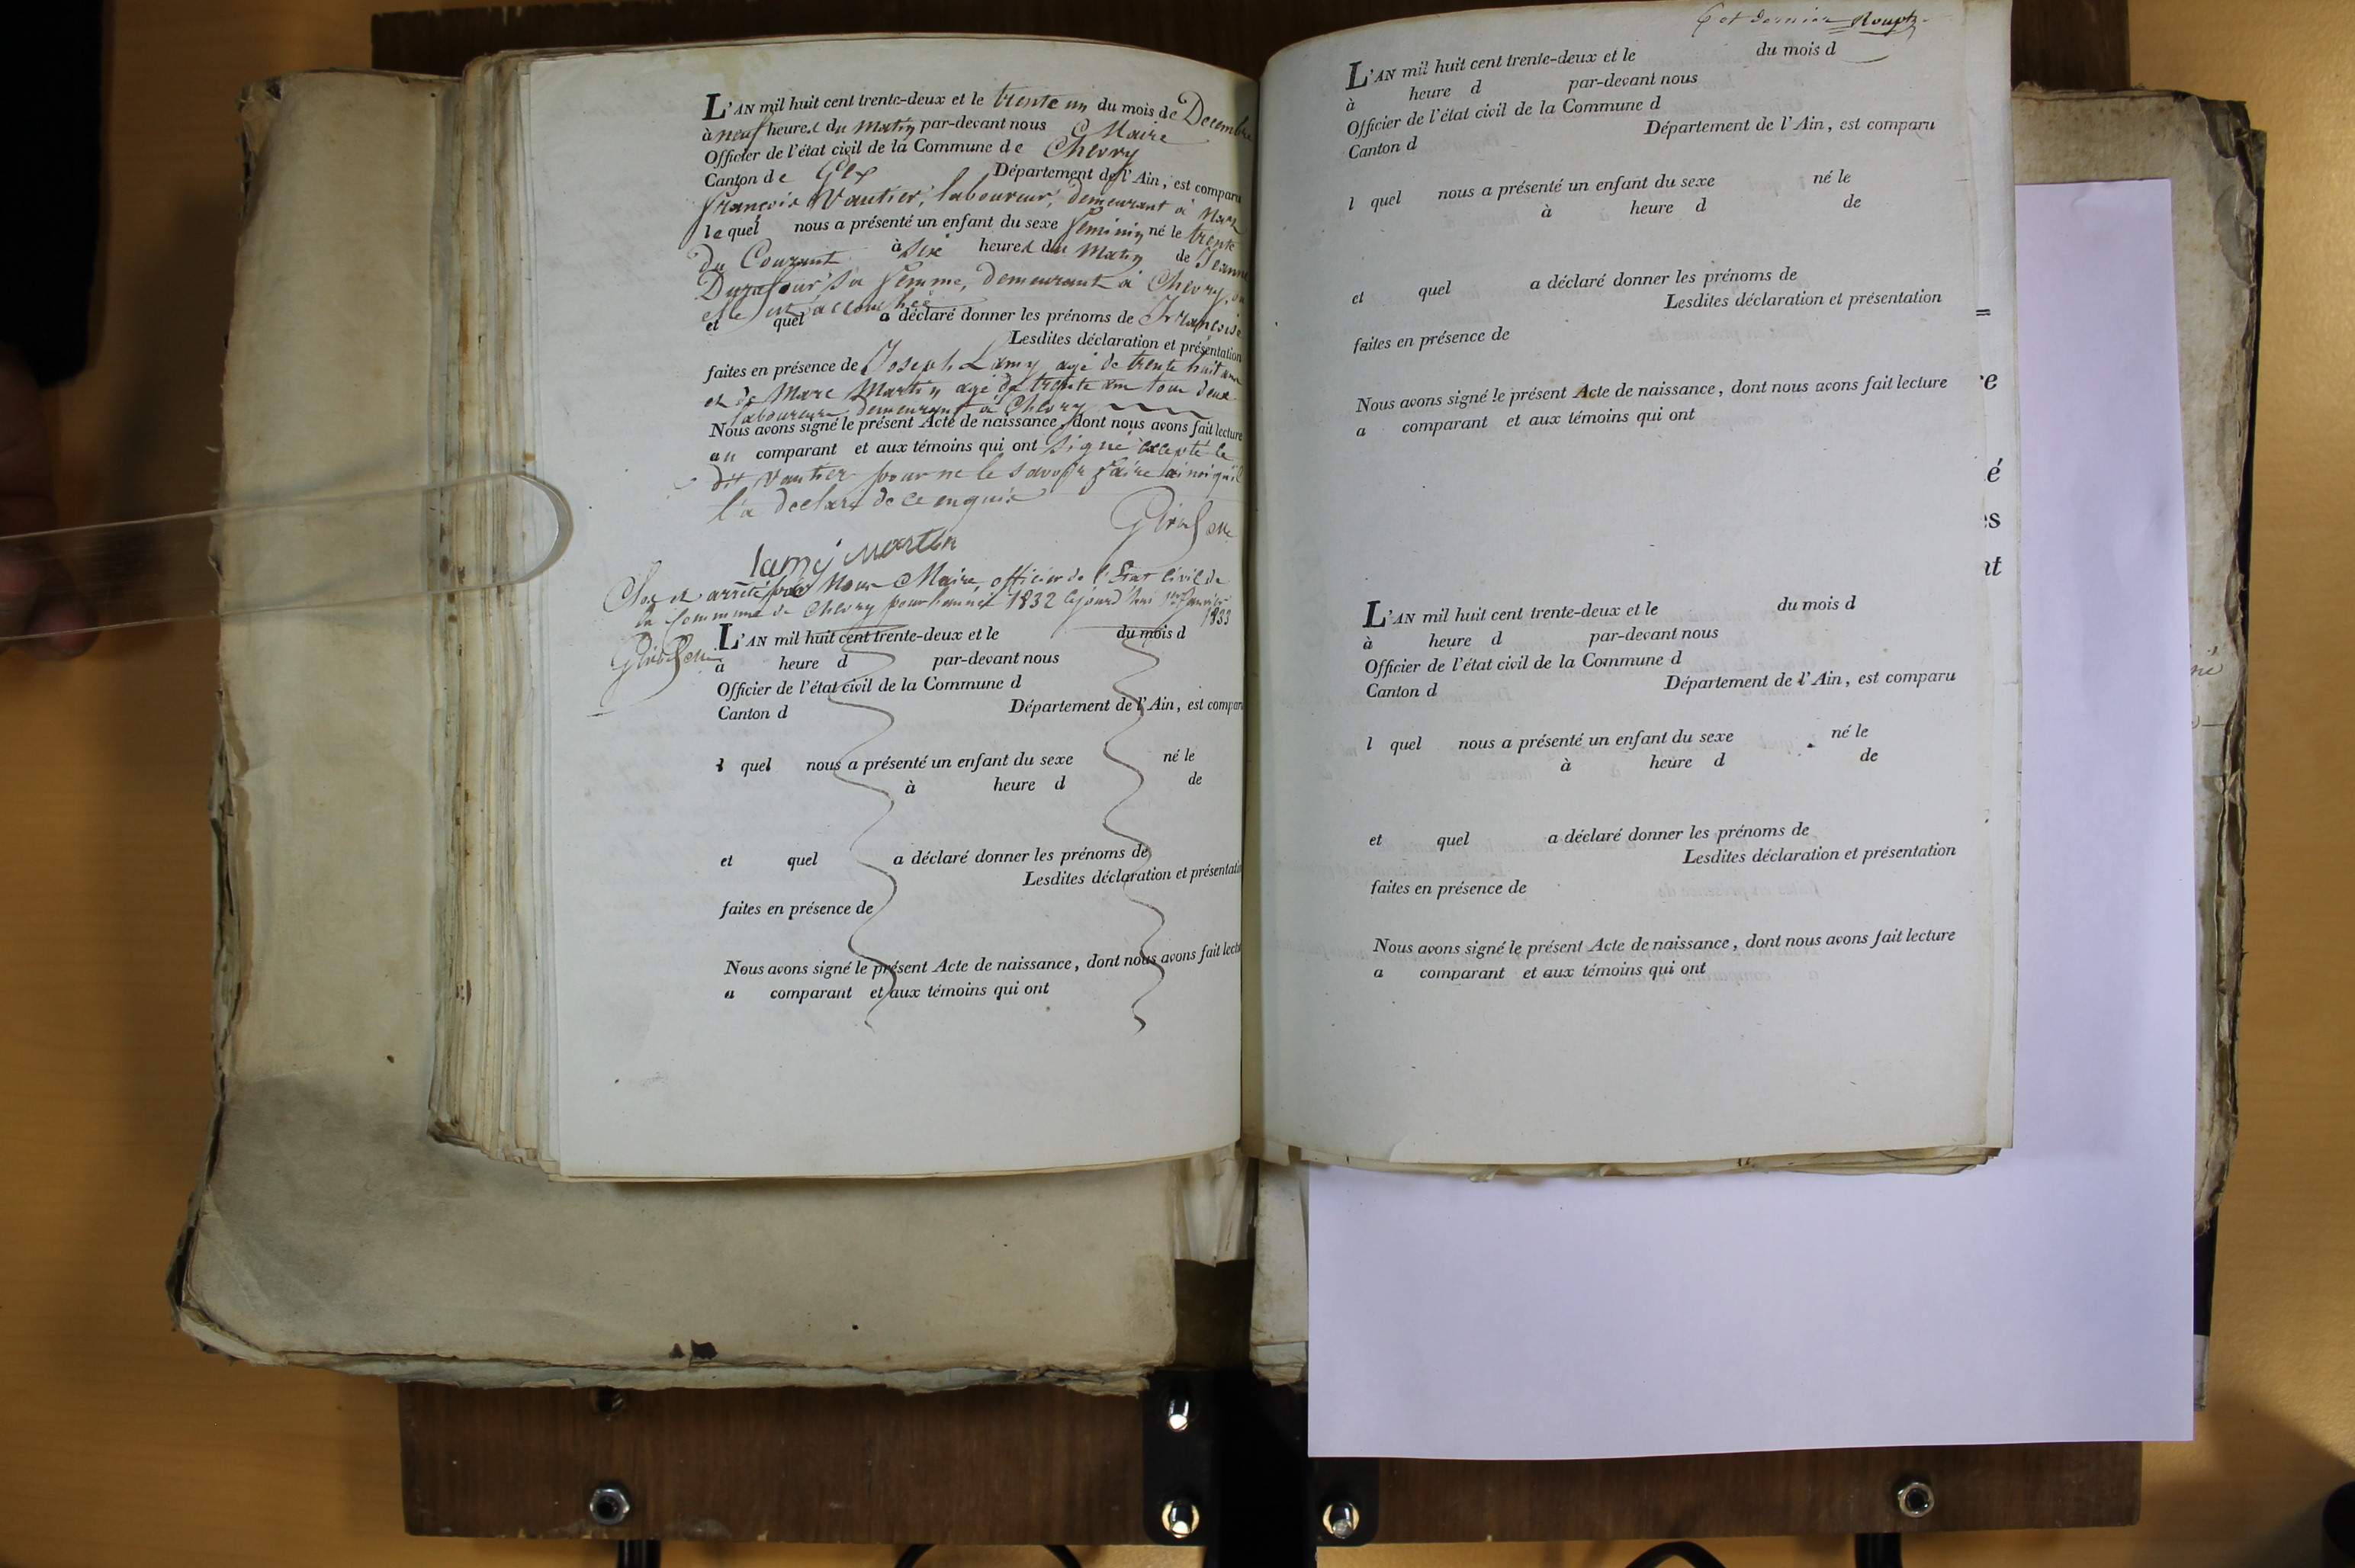 L'AN mil huit cent trente-deux et le trente un du mois de Decembre
à neuf heures du Matin par-devant nous Maire
Officier de l'état civil de la Commune de Chevry
Canton de Gex Département de l'Ain, est comparu
françois Vautier, laboureur, demeurant à
lequel nous a présenté un enfant du sexe feminin né le trente
du Courant à Six heures du Matin de Jeanne
Dugafour Sa femme, demeurant à Chevry, ou
elle est accouchée
et quel a déclaré donner les prénoms de Françoise
Lesdites déclaration et présentation
faites en présence de Joseph Lamy agé de trente huit ans
et de Marc Martin agé de trente ans tous deux
laboureurs demeurant à Chevry
Nous avons signé le présent Acte de naissance, dont nous avons fait lecture
au comparant et aux témoins qui ont Signé excepté le
dit Vautier pour ne le savoir faire ainsi qu'il
l'a declaré de ce enquis
lamy Martin
Clos et arrêté par Nous Maire officier de l'Etat Civil de
la Commune de Chevry pour l'année 1832 cejourd'hui 1er Janvier
1833
L'AN mil huit cent trente-deux et le du mois d
à heure d par-devant nous
Officier de l'état civil de la Commune d
Canton d Département de l'Ain, est comparu
l quel nous a présenté un enfant du sexe né le
à heure d de
et quel a déclaré donner les prénoms de
Lesdites déclaration et présentation
faites en présence de
Nous avons signé le présent Acte de naissance, dont nous avons fait lecture
a comparant et aux témoins qui ont
6 et dernier
L'AN mil huit cent trente-deux et le du mois d
à heure d par-devant nous
Officier de l'état civil de la Commune d
Canton d Département de l'Ain, est comparu
l quel nous a présenté un enfant du sexe né le
à heure d de
et quel a déclaré donner les prénoms de
Lesdites déclaration et présentation
faites en présence de
Nous avons signé le présent Acte de naissance, dont nous avons fait lecture
a comparant et aux témoins qui ont
L'AN mil huit cent trente-deux et le du mois d
à heure d par-devant nous
Officier de l'état civil de la Commune d
Canton d Département de l'Ain, est comparu
l quel nous a présenté un enfant du sexe né le
à heure d de
et quel a déclaré donner les prénoms de
Lesdites déclaration et présentation
faites en présence de
Nous avons signé le présent Acte de naissance, dont nous avons fait lecture
a comparant et aux témoins qui ont